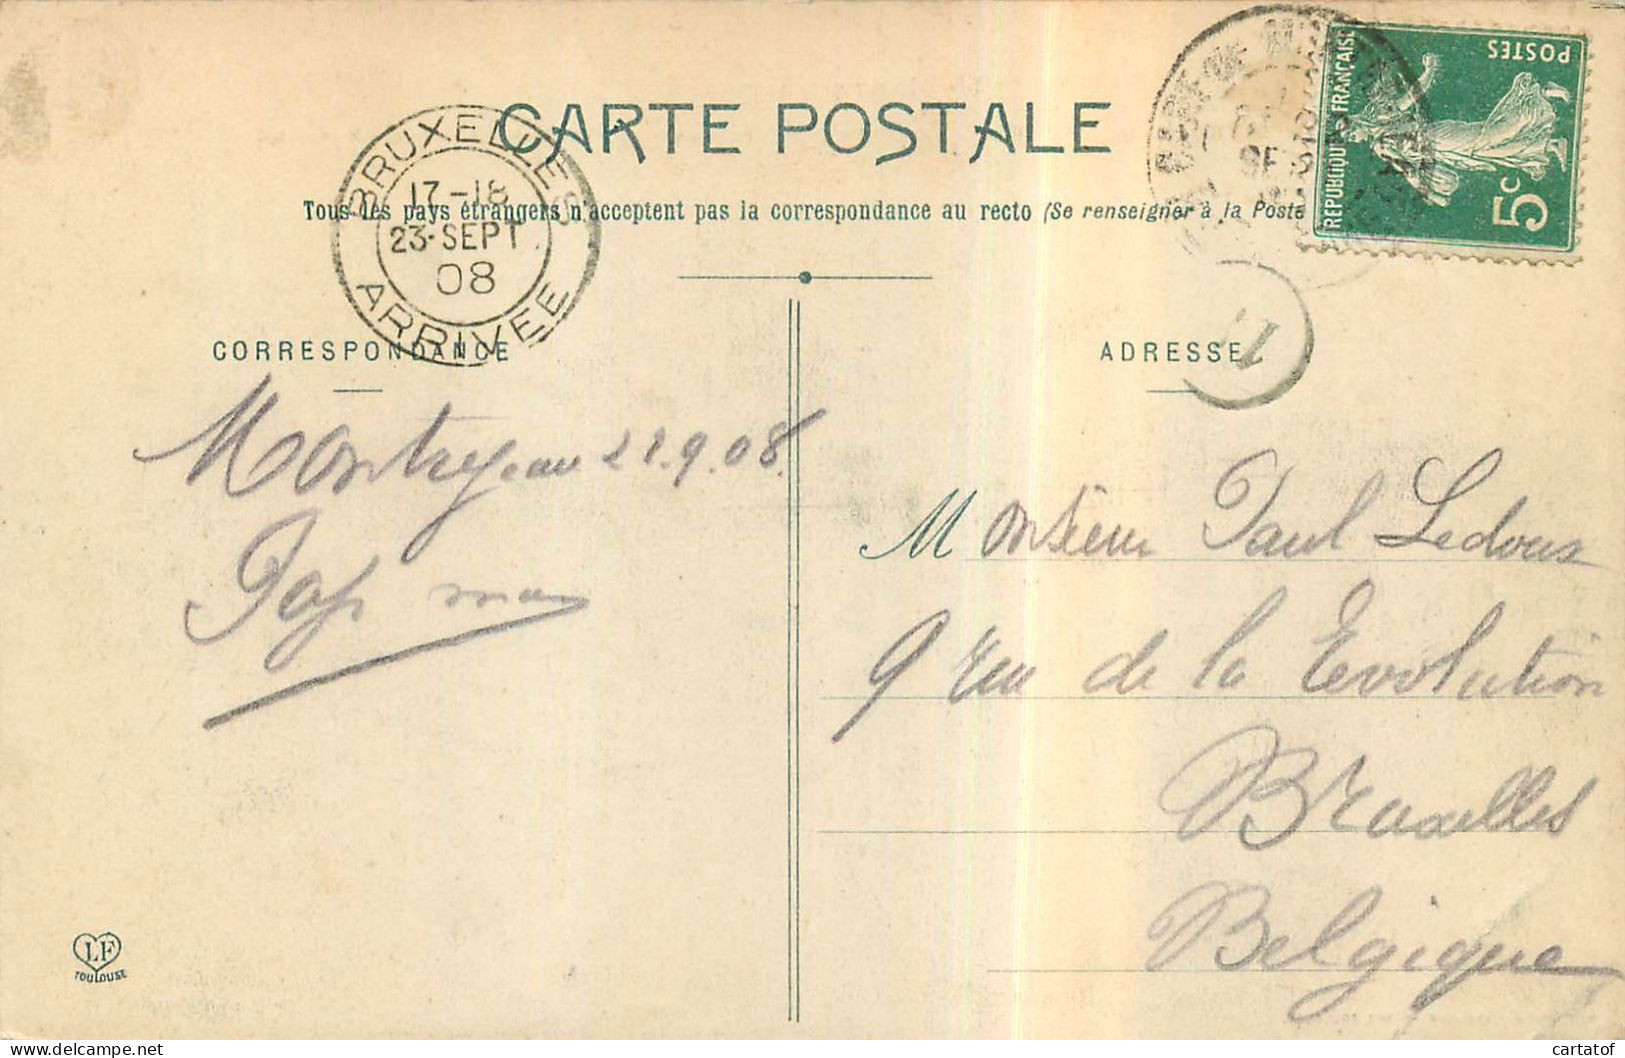 CARTE POSTALE
Tous les pays étrangers n'acceptent pas la correspondance au recto (Se renseigner à la Poste
BRUXELLES
17-18
23·SEPT
08
ARRIVEE
REPUBLIQUE FRANÇAISE
POSTES
5c
CORRESPONDANCE
ADRESSE
1
Montrejeau 22.9.08.
Monsieur Paul Ledoux
9 rue de la Evolution
Bruxelles
Belgique
LF
TOULOUSE
cartatof